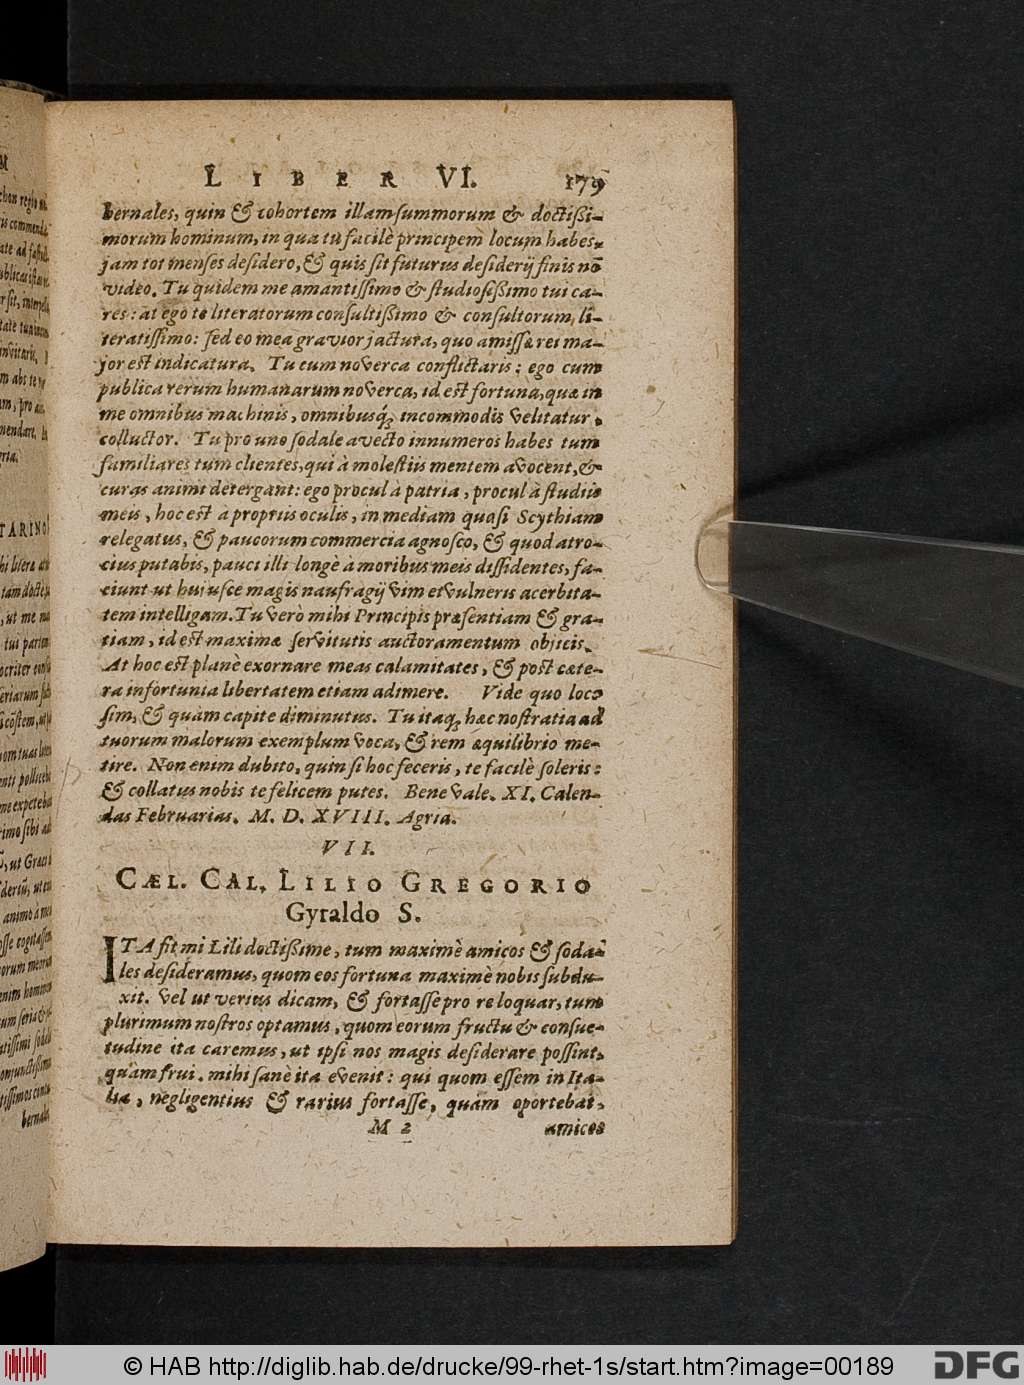 LIBER VI. 179
bernales, quin & cohortem illam summorum & doctißi-
morum hominum, in qua tu facilè principem locum habes,
jam tot menses desidero, & quis sit futurus desiderij finis nõ
video. Tu quidem me amantissimo & studiosißimo tui ca-
res: at ego te literatorum consultißimo & consultorum, li-
teratissimo: sed eo mea gravior jactura, quo amissæ rei ma-
jor est indicatura. Tu cum noverca conflictaris: ego cum
publica rerum humanarum noverca, id est fortuna, quæ in
me omnibus machinis, omnibusq; incommodis velitatur,
colluctor. Tu pro uno sodale avecto innumeros habes tum
familiares tum clientes, qui à molestiis mentem avocent, &
curas animi detergant: ego procul à patria, procul à studiis
meis, hoc est à propriis oculis, in mediam quasi Scythiam
relegatus, & paucorum commercia agnosco, & quod atro-
cius putabis, pauci illi longè à moribus meis dissidentes, fa-
ciunt ut hujusce magis naufragij vim et vulneris acerbita-
tem intelligam. Tu verò mihi Principis præsentiam & gra-
tiam, id est maximæ servitutis auctoramentum objicis.
At hoc est planè exornare meas calamitates, & post cæte-
ra infortunia libertatem etiam adimere. Vide quo loco
sim, & quàm capite diminutus. Tu itaq; hæc nostratia ad
tuorum malorum exemplum voca, & rem æquilibrio me-
tire. Non enim dubito, quin si hoc feceris, te facilè soleris:
& collatus nobis te felicem putes. Bene vale. XI. Calen-
das Februarias. M. D. XVIII. Agria.
VII.
CÆL. CAL. LILIO GREGORIO
Gyraldo S.
ITA fit mi Lili doctißime, tum maximè amicos & soda-
les desideramus, quom eos fortuna maximè nobis subdu-
xit. Vel ut verius dicam, & fortasse pro re loquar, tum
plurimum nostros optamus, quom eorum fructu & consue-
tudine ita caremus, ut ipsi nos magis desiderare possint,
quàm frui. mihi sanè ita evenit: qui quom essem in Ita-
lia, negligentius & rarius fortasse, quàm oportebat,
M 2 amicos
© HAB http://diglib.hab.de/drucke/99-rhet-1s/start.htm?image=00189
DFG